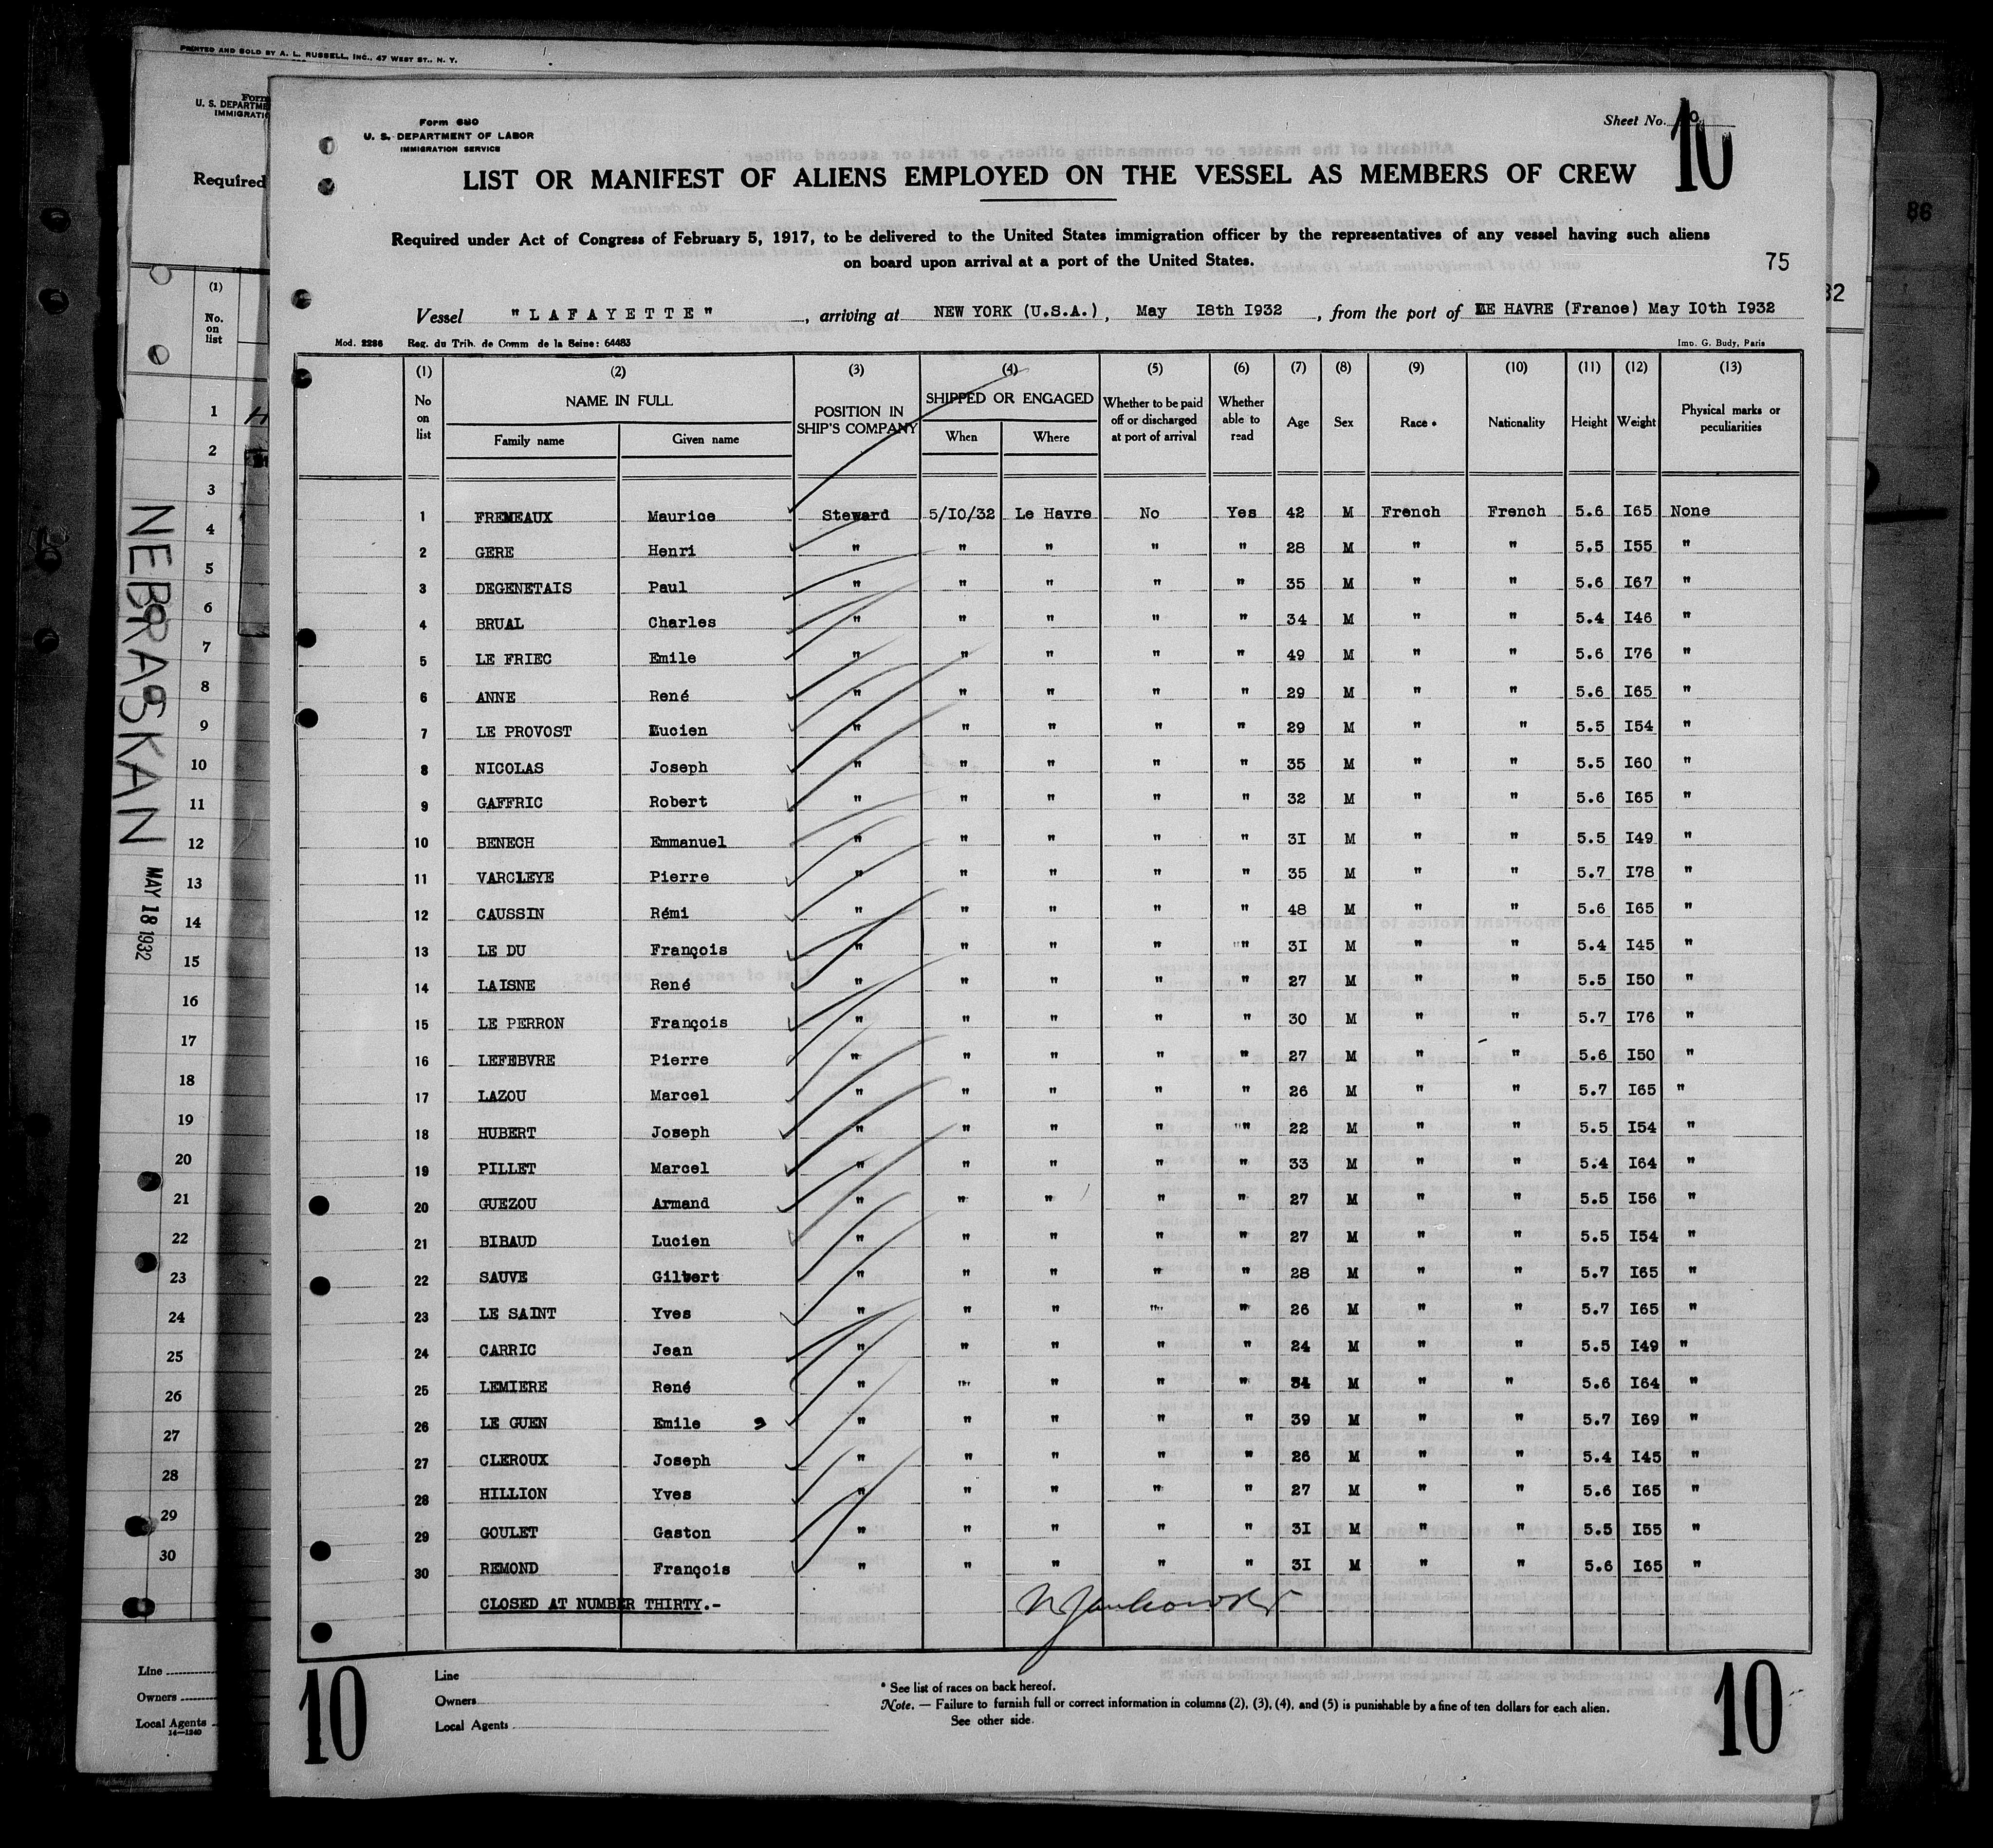 PRINTED AND SOLD BY A. L. RUSSELL, INC., 47 WEST ST., N. Y.
Form
U. S. DEPARTME
IMMIGRATIO
Required
(1)
No.
on
list
1
2
3
4
5
6
7
8
9
10
11
12
13
14
15
16
17
18
19
20
21
22
23
24
25
26
27
28
29
30
Line
Owners
Local Agents
14—1240
NEBRASKAN
MAY 18 1932
86
32
Form 680
U. S. DEPARTMENT OF LABOR
IMMIGRATION SERVICE
Sheet No. 10
LIST OR MANIFEST OF ALIENS EMPLOYED ON THE VESSEL AS MEMBERS OF CREW
Required under Act of Congress of February 5, 1917, to be delivered to the United States immigration officer by the representatives of any vessel having such aliens
on board upon arrival at a port of the United States.
75
Vessel "LAFAYETTE", arriving at NEW YORK (U.S.A.), May I8th I932, from the port of LE HAVRE (France) May I0th I932
Mod. 2286 Reg. du Trib. de Comm de la Seine: 64483 Imp. G. Budy, Paris
(1) (2) (3) (4) (5) (6) (7) (8) (9) (10) (11) (12) (13)
No on list NAME IN FULL Family name Given name POSITION IN SHIP'S COMPANY SHIPPED OR ENGAGED When Where Whether to be paid off or discharged at port of arrival Whether able to read Age Sex Race * Nationality Height Weight Physical marks or peculiarities
1 FREMEAUX Maurice Steward 5/I0/32 Le Havre No Yes 42 M French French 5.6 I65 None
2 GERE Henri " " " " " 28 M " " 5.5 I55 "
3 DEGENETAIS Paul " " " " " 35 M " " 5.6 I67 "
4 BRUAL Charles " " " " " 34 M " " 5.4 I46 "
5 LE FRIEC Emile " " " " " 49 M " " 5.6 I76 "
6 ANNE René " " " " " 29 M " " 5.6 I65 "
7 LE PROVOST Lucien " " " " " 29 M " " 5.5 I54 "
8 NICOLAS Joseph " " " " " 35 M " " 5.5 I60 "
9 GAFFRIC Robert " " " " " 32 M " " 5.6 I65 "
10 BENECH Emmanuel " " " " " 3I M " " 5.5 I49 "
11 VARCLEYE Pierre " " " " " 35 M " " 5.7 I78 "
12 CAUSSIN Rémi " " " " " 48 M " " 5.6 I65 "
13 LE DU François " " " " " 3I M " " 5.4 I45 "
14 LAISNE René " " " " " 27 M " " 5.5 I50 "
15 LE PERRON François " " " " " 30 M " " 5.7 I76 "
16 LEFEBVRE Pierre " " " " " 27 M " " 5.6 I50 "
17 LAZOU Marcel " " " " " 26 M " " 5.7 I65 "
18 HUBERT Joseph " " " " " 22 M " " 5.5 I54 "
19 PILLET Marcel " " " " " 33 M " " 5.4 I64 "
20 GUEZOU Armand " " " " " 27 M " " 5.5 I56 "
21 BIBAUD Lucien " " " " " 27 M " " 5.5 I54 "
22 SAUVE Gilbert " " " " " 28 M " " 5.7 I65 "
23 LE SAINT Yves " " " " " 26 M " " 5.7 I65 "
24 CARRIC Jean " " " " " 24 M " " 5.5 I49 "
25 LEMIERE René " " " " " 34 M " " 5.6 I64 "
26 LE GUEN Emile " " " " " 39 M " " 5.7 I69 "
27 CLEROUX Joseph " " " " " 26 M " " 5.4 I45 "
28 HILLION Yves " " " " " 27 M " " 5.6 I65 "
29 GOULET Gaston " " " " " 3I M " " 5.5 I55 "
30 REMOND François " " " " " 3I M " " 5.6 I65 "
CLOSED AT NUMBER THIRTY.-
10
Line
Owners
Local Agents
* See list of races on back hereof.
Note. — Failure to furnish full or correct information in columns (2), (3), (4), and (5) is punishable by a fine of ten dollars for each alien.
See other side.
10